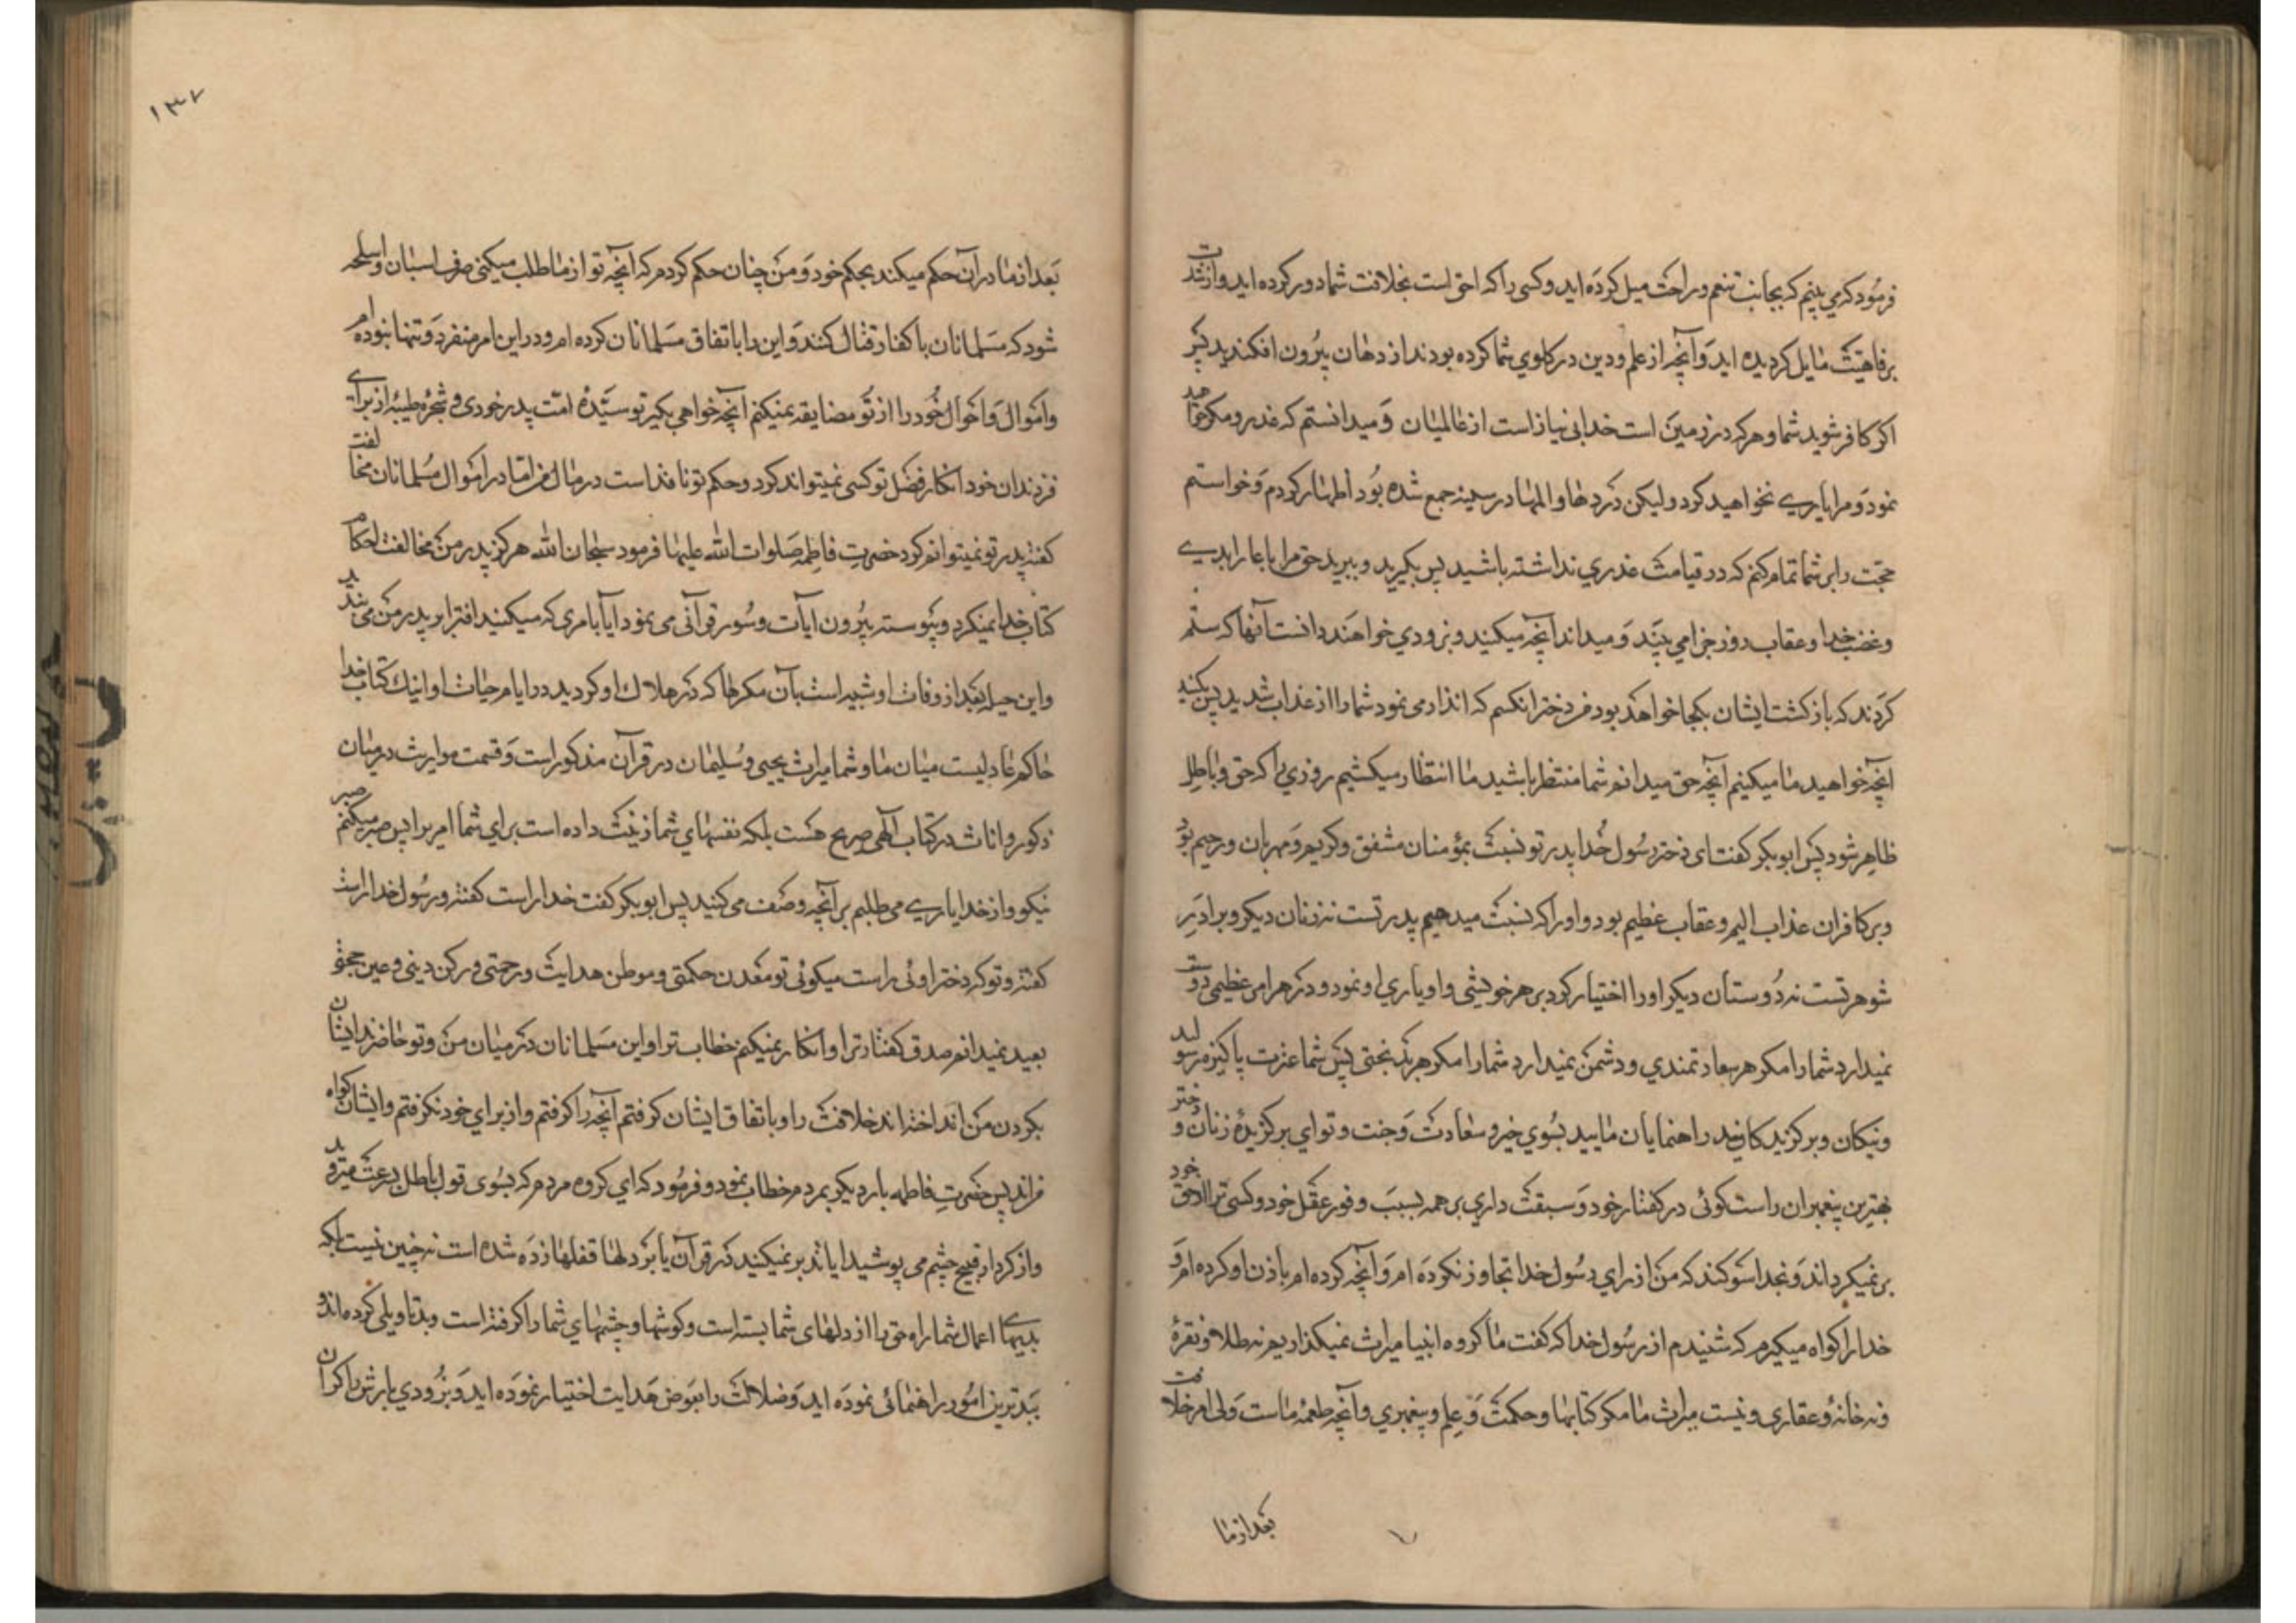 فرمود که می بینم که بجانب تنعم و راحت میل کرده اید و کسی را که احق است بخلافت شما دور کرده اید و از شدت
برفاهیت مایل کردیده اید و آنچه از علم و دین در کلوی شما کرده بودند از دهان بیرون افکندید پس
اکر کافر شوید شما و هر که در زمین است خدا بی نیاز است از عالمیان و میدانستم که غدر و مکر خواهید
نمود و مرا یاری نخواهید کرد و لیکن دردها و المها در سینه جمع شده بود اظهار کردم و خواستم
حجت را بر شما تمام کنم که در قیامت عذری نداشته باشید پس بکیرید و ببرید حق مرا با عار ابدی
و غضب خدا و عقاب روز جزا می بیند و میداند آنچه میکنید و بزودی خواهند دانست آنها که ستم
کردند که بازکشت ایشان بکجا خواهد بود و من دختر انکسم که انذار می نمود شما را از عذاب شدید پس بکنید
آنچه خواهید ما میکنیم آنچه حق میدانیم شما منتظر باشید ما انتظار میکشیم روزی را که حق و باطل
ظاهر شود پس ابوبکر کفت ای دختر رسول خدا پدر تو نسبت بمؤمنان مشفق و کریم و مهربان و رحیم بود
و بر کافران عذاب الیم و عقاب عظیم بود و او را که نسبت میدهیم پدر تست نه زنان دیکر و برادر
شوهر تست نه دوستان دیکر او را اختیار کرد بر هر خویشی و او یاری او نمود در هر امر عظیمی دوست
نمیدارد شما را مکر هر سعادتمندی و دشمن نمیدارد شما را مکر هر بد بختی پس شما عترت پاکیزه رسولید
و نیکان و برکزیدکانید راهنمایان مایید بسوی خیر و سعادت و جنت و تو ای برکزیده زنان و دختر
بهترین پیغمبران راست کوئی در کفتار خود و سبقت داری بر همه بسبب وفور عقل خود و کسی ترا از حق خود
بر نمیکرداند و بخدا سوکند که من از رای رسول خدا تجاوز نکرده ام و آنچه کرده ام باذن او کرده ام و
خدا را کواه میکیرم که شنیدم از رسول خدا که کفت ما کروه انبیا میراث نمیکذاریم نه طلا و نقرهٔ
و نه خانهٔ و عقاری و نیست میراث ما مکر کتابها و حکمت و علم و پیغمبری و آنچه طعمهٔ ماست ولی امر خلافت
بعد از ما
۱۳۷
بعد از ما در آن حکم میکند بحکم خود و من چنان حکم کردم که آنچه تو از ما طلب میکنی صرف اسبان و اسلحه
شود که مسلمانان با کفار قتال کنند و این را باتفاق مسلمانان کرده ام و در این امر منفرد و تنها نبوده ام
و اموال و احوال خود را از تو مضایقه نمیکنم آنچه خواهی بکیر تو سیدهٔ امت پدر خودی و شجرهٔ طیبهٔ از برای
فرزندان خود انکار فضل تو کسی نمیتواند کرد و حکم تو نافذ است در مال من اما در اموال مسلمانان مخالفت
کفتهٔ پدر تو نمیتوانم کرد حضرت فاطمه صلوات الله علیها فرمود سبحان الله هرکز پدر من مخالفت احکام
کتاب خدا نمیکرد و پیوسته پیرو آیات و سور قرآنی می بود آیا با مری که میکنید افترا بر پدر من می بندید
و این حیله بعد از وفات او شبیه است بآن مکرها که در هلاک او کردید در ایام حیات او اینک کتاب خدا
حاکم عادلیست میان ما و شما میراث یحیی و سلیمان در قرآن مذکور است و قسمت مواریث در میان
ذکور و اناث در کتاب آلهی صریح هست بلکه نفسهای شما زینت داده است برای شما امر برا پس صبر میکنم صبر
نیکو و از خدا یاری می طلبم بر آنچه وصف می کنید پس ابوبکر کفت خدا راست کفته و رسول خدا راست
کفته و تو که دختر اوئی راست میکوئی تو معدن حکمتی و موطن هدایت و رحمتی و رکن دینی و عین حجتی
بعید نمیدانم صدق کفتار ترا و انکار نمیکنم خطاب ترا و این مسلمانان در میان من و تو حاضرند ایشان
بکردن من انداخته اند خلافت را و باتفاق ایشان کرفتم آنچه را کرفتم و از برای خود نکرفتم و ایشان کواه
من اند پس حضرت فاطمه بار دیکر بمردم خطاب نمود و فرمود که ای کروه مردم که بسوی قول باطل بسرعت میروید
و از کردار قبیح چشم می پوشید ایا تدبر نمیکنید در قرآن یا بر دلها قفلها زده شده است نه چنین نیست بلکه
بدیهای اعمال شما راه حق را از دلهای شما بسته است و کوشها و چشمهای شما را کرفته است و بد تاویلی کرده اند و
ببدترین امور راهنمائی نموده اید و ضلالت را بعوض هدایت اختیار نموده اید و بزودی بارش را کران